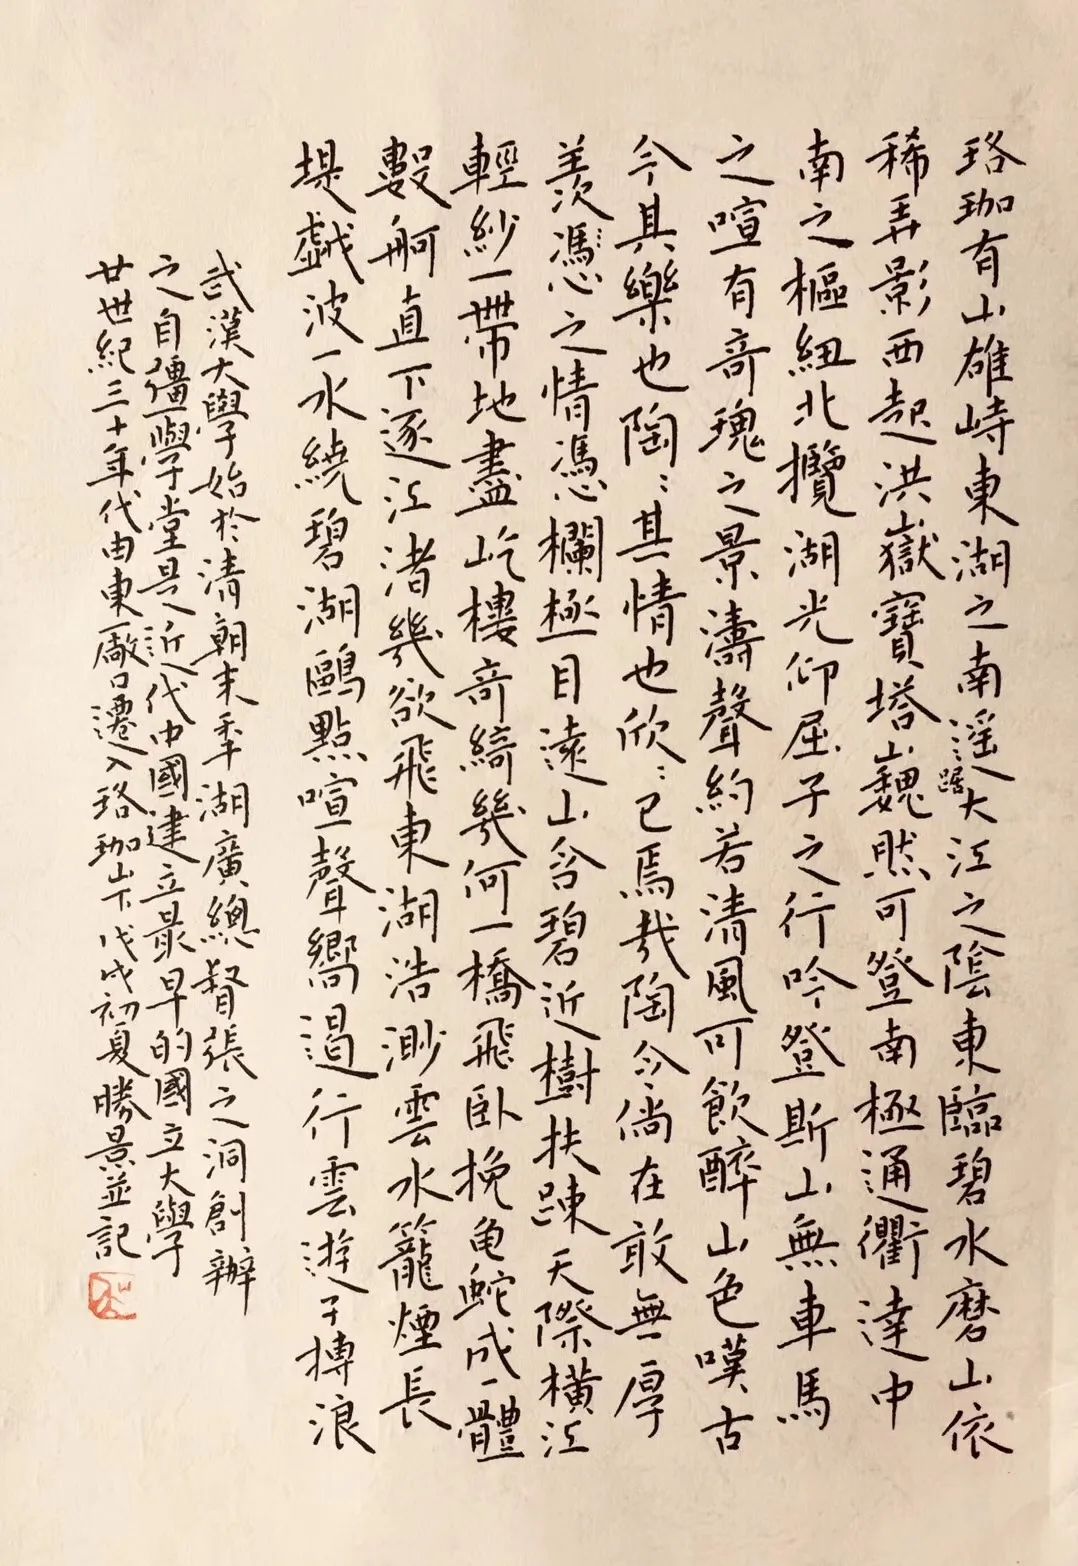 珞珈有山雄峙東湖之南遥遥踞大江之陰東臨碧水磨山依
稀弄影西起洪嶽寶塔巍然可登南極通衢達中
南之樞紐北攬湖光仰屈子之行吟登斯山無車馬
之喧有奇瑰之景濤聲約若清風可飲醉山色嘆古
今其樂也陶陶其情也欣欣已焉哉陶令尚在敢無厚
羨馮馮之情馮欄極目遠山含碧近樹扶踈天際橫江
輕紗一帶地盡屹樓奇綺幾何一橋飛卧挽龟蛇成一體
數舸直下逐江渚幾欲飛東湖浩渺雲水籠煙長
堤越波一水繞碧湖鷗點喧聲嚮遏行雲遊子搏浪
武漢大學始於清朝末季湖廣總督張之洞創辦
之自彊學堂是近代中國建立最早的國立大學
廿世紀三十年代由東廠口遷入珞珈山下戊戌初夏勝景並記